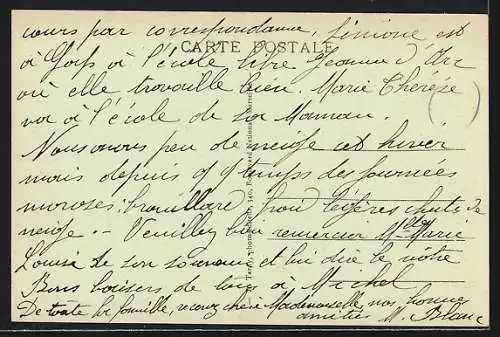 cours par correspondance, Simone est
CARTE POSTALE
à Gap à l'école libre Jeanne d'Arc
où elle travaille bien. Marie Thérèse
va à l'école de sa Maman.
Nous avons peu de neige cet hiver
mais depuis qq temps des journées
moroses: brouillard, froid légères chutes de
neige. - Veuillez bien remercier Mlle Marie
Louise de son souvenir et lui dire le notre
Bons baisers de tous à Michel
De toute la famille, recevez chère Mademoiselle, nos bonnes
amitiés M. Blanc